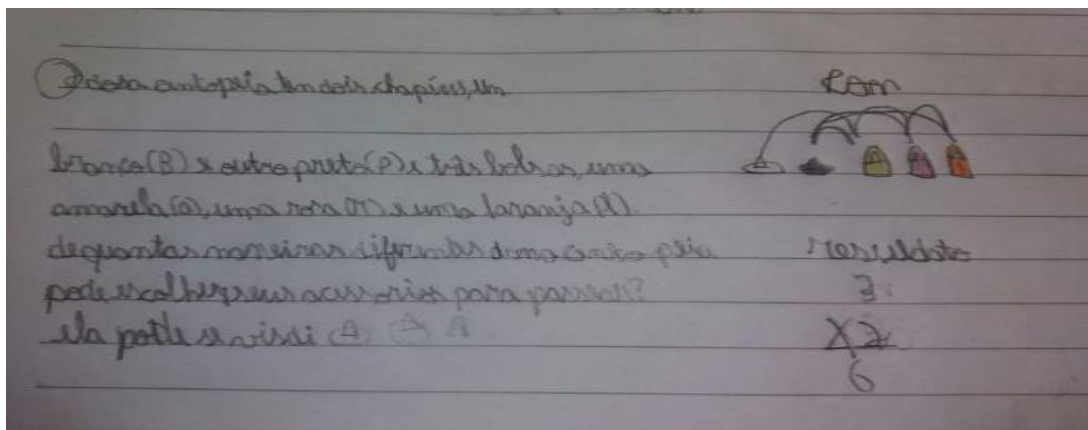 ② dona antopeia tem dois chapéus, um
branco (B) e outro preto (P) e três bolsas, uma
amarela (a), uma rosa (r) e uma laranja (l).
de quantas maneiras diferentes dona
pode escolher seus acessórios para passear?
ela pode se
resuldato
3
X2
6